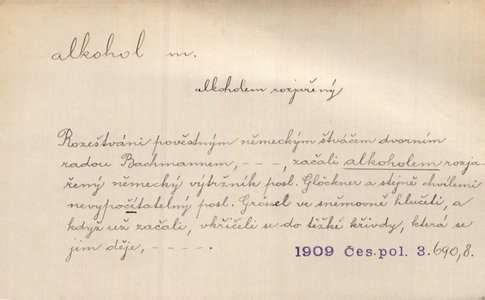 alkohol m.
alkoholem rozjařený
Rozeštváni pověstným německým štváčem dvorním
radou Bachmannem, – – –, začali alkoholem rozja-
řený německý výtržník posl. Glöckner a stejně chvílemi
nevypočítatelný posl. Grössl ve sněmovně hlučeti, a
když už začali, vkřičeli se do těžké křivdy, která se
jim děje, – – – –.
1909 Čes. pol. 3. 690, 8.